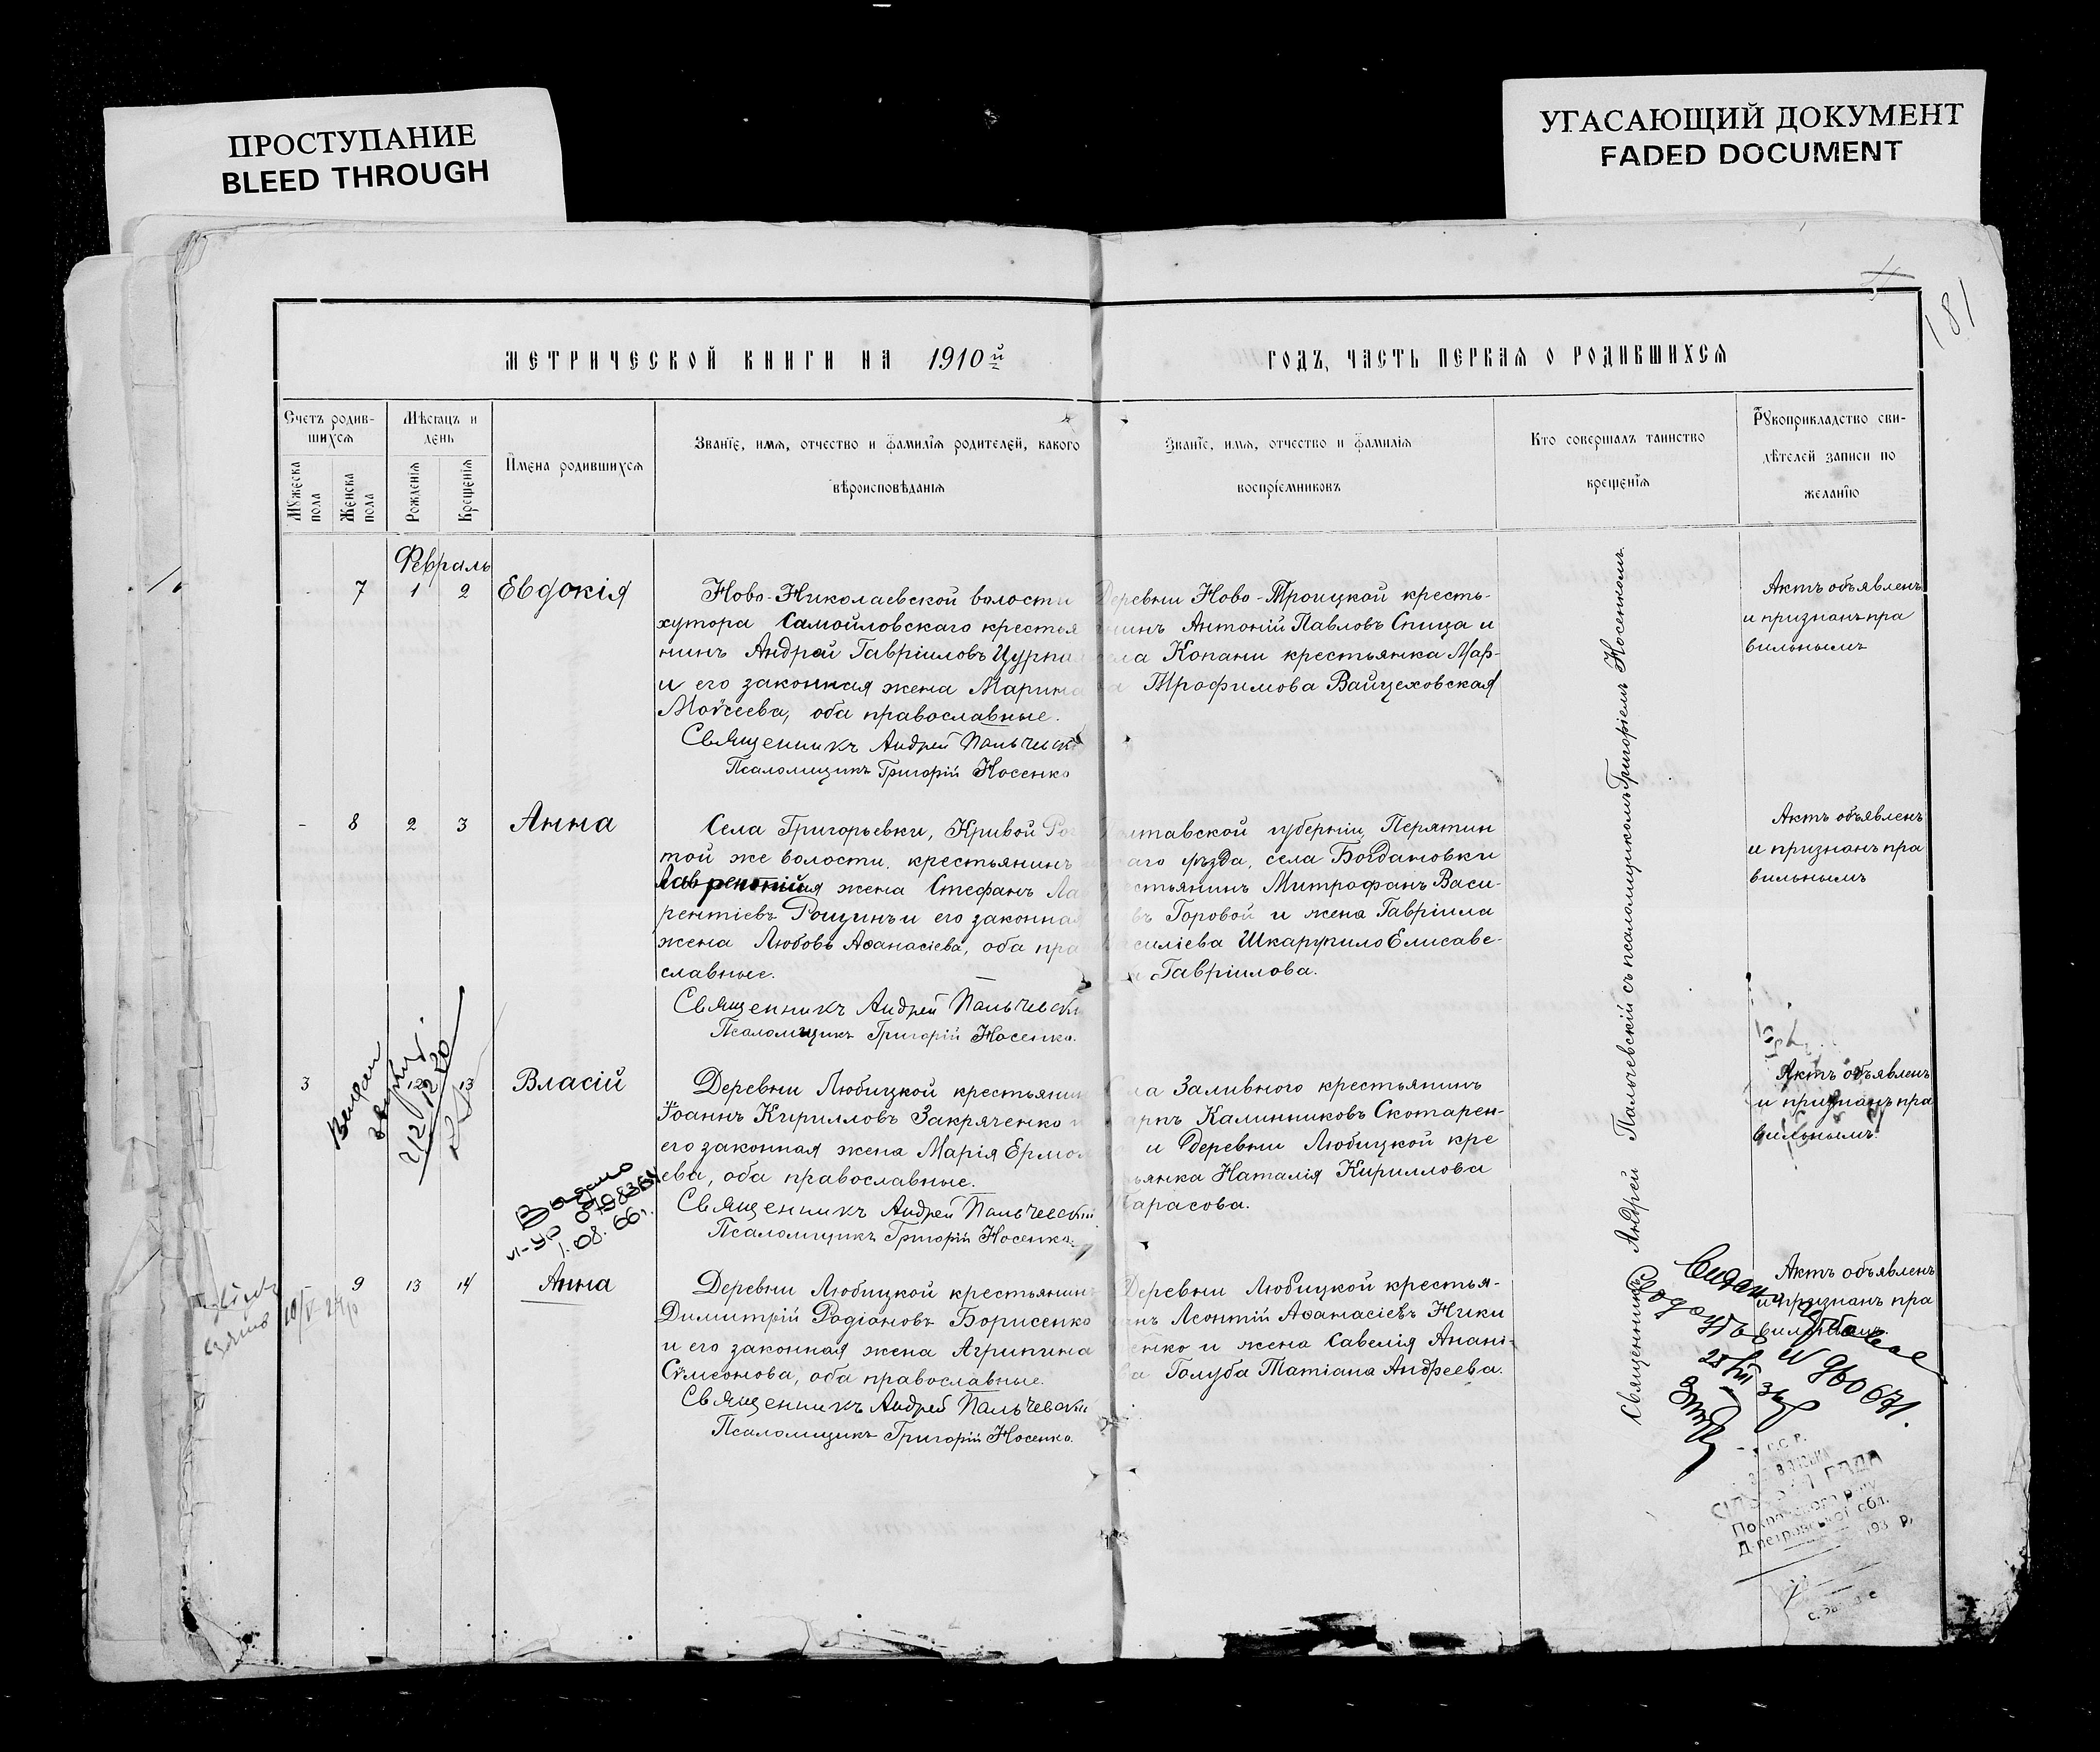 ПРОСТУПАНИЕ
BLEED THROUGH
УГАСАЮЩИЙ ДОКУМЕНТ
FADED DOCUMENT
181
МЕТРИЧЕСКОЙ КНИГИ НА 1910й
ГОДЪ, ЧАСТЬ ПЕРВАЯ О РОДИВШИХСЯ
Счетъ родив-
шихся
Мѣсяцъ и
день
Мужеска
пола
Женска
пола
Рожденія
Крещенія
Имена родившихся
Званіе, имя, отчество и фамилія родителей, какого
вѣроисповѣданія
Званіе, имя, отчество и фамилія
воспріемниковъ
Кто совершалъ таинство
крещенія
Рукоприкладство сви-
дѣтелей записи по
желанію
Февраль
- 7 1 2 Евдокія
Ново-Николаевской волости
хутора Самойловскаго крестья
нинъ Андрей Гавріиловъ
и его законная жена Марина
Моѵсеева, оба православные.
Священникъ Андрей Пальчевскі
Псаломщикъ Григорій Носенко
Деревни Ново-Троицкой кресть-
нинъ Антоній Павловъ Спица и
села Копани крестьянка Маѳ-
Трофимова Вайцеховская
Актъ объявленъ
и признанъ пра
вильнымъ
- 8 2 3 Анна
Села Григорьевки, Кривой Ро
той же волости, крестьянинъ
жена Стефанъ Ла
рентіевъ Рощинъ и его законная
жена Любовь Аѳанасіева, оба пра
славные.
Священникъ Андрей Пальчевскі
Псаломщикъ Григорій Носенко.
тавской губерніи, Перятин
аго уѣзда, села Богдановки
стьянинъ Митрофанъ Васи-
въ Горовой и жена Гавріила
силіева Шкарупило Елисаве-
Гавріилова.
Актъ объявленъ
и признанъ пра
вильнымъ
3 12 13 Власій
Деревни Любицкой крестьянин
Іоаннъ Кирилловъ Закряченко и
его законная жена Марія Ермол
ева, оба православные.
Священникъ Андрей Пальчевскій
Псаломщикъ Григорій Носенко.
ла Заливного крестьянинъ
арпъ Калинниковъ Скотарен-
и деревни Любицкой кре
ьянка Наталія Кириллова
Тарасова.
Актъ объявленъ
и признанъ пра
вильнымъ.
Выдано
1.08.66г.
9 13 14 Анна
Деревни Любицкой крестьянинъ
Димитрій Родіоновъ Борисенко
и его законная жена Агрипина
Сѵмеонова, оба православные.
Священникъ Андрей Пальчевскі
Псаломщикъ Григорій Носенко.
Деревни Любицкой крестья-
нъ Леонтій Аѳанасіевъ Ники
енко и жена Савелія Анані-
ва Голуба Татіана Андреева.
Актъ объявленъ
и признанъ пра
Священникъ Андрей Пальчевскій съ псаломщикомъ Григоріемъ Носенкомъ
РАДА
Покровського р-ну
Д-петровської обл.
193 р.